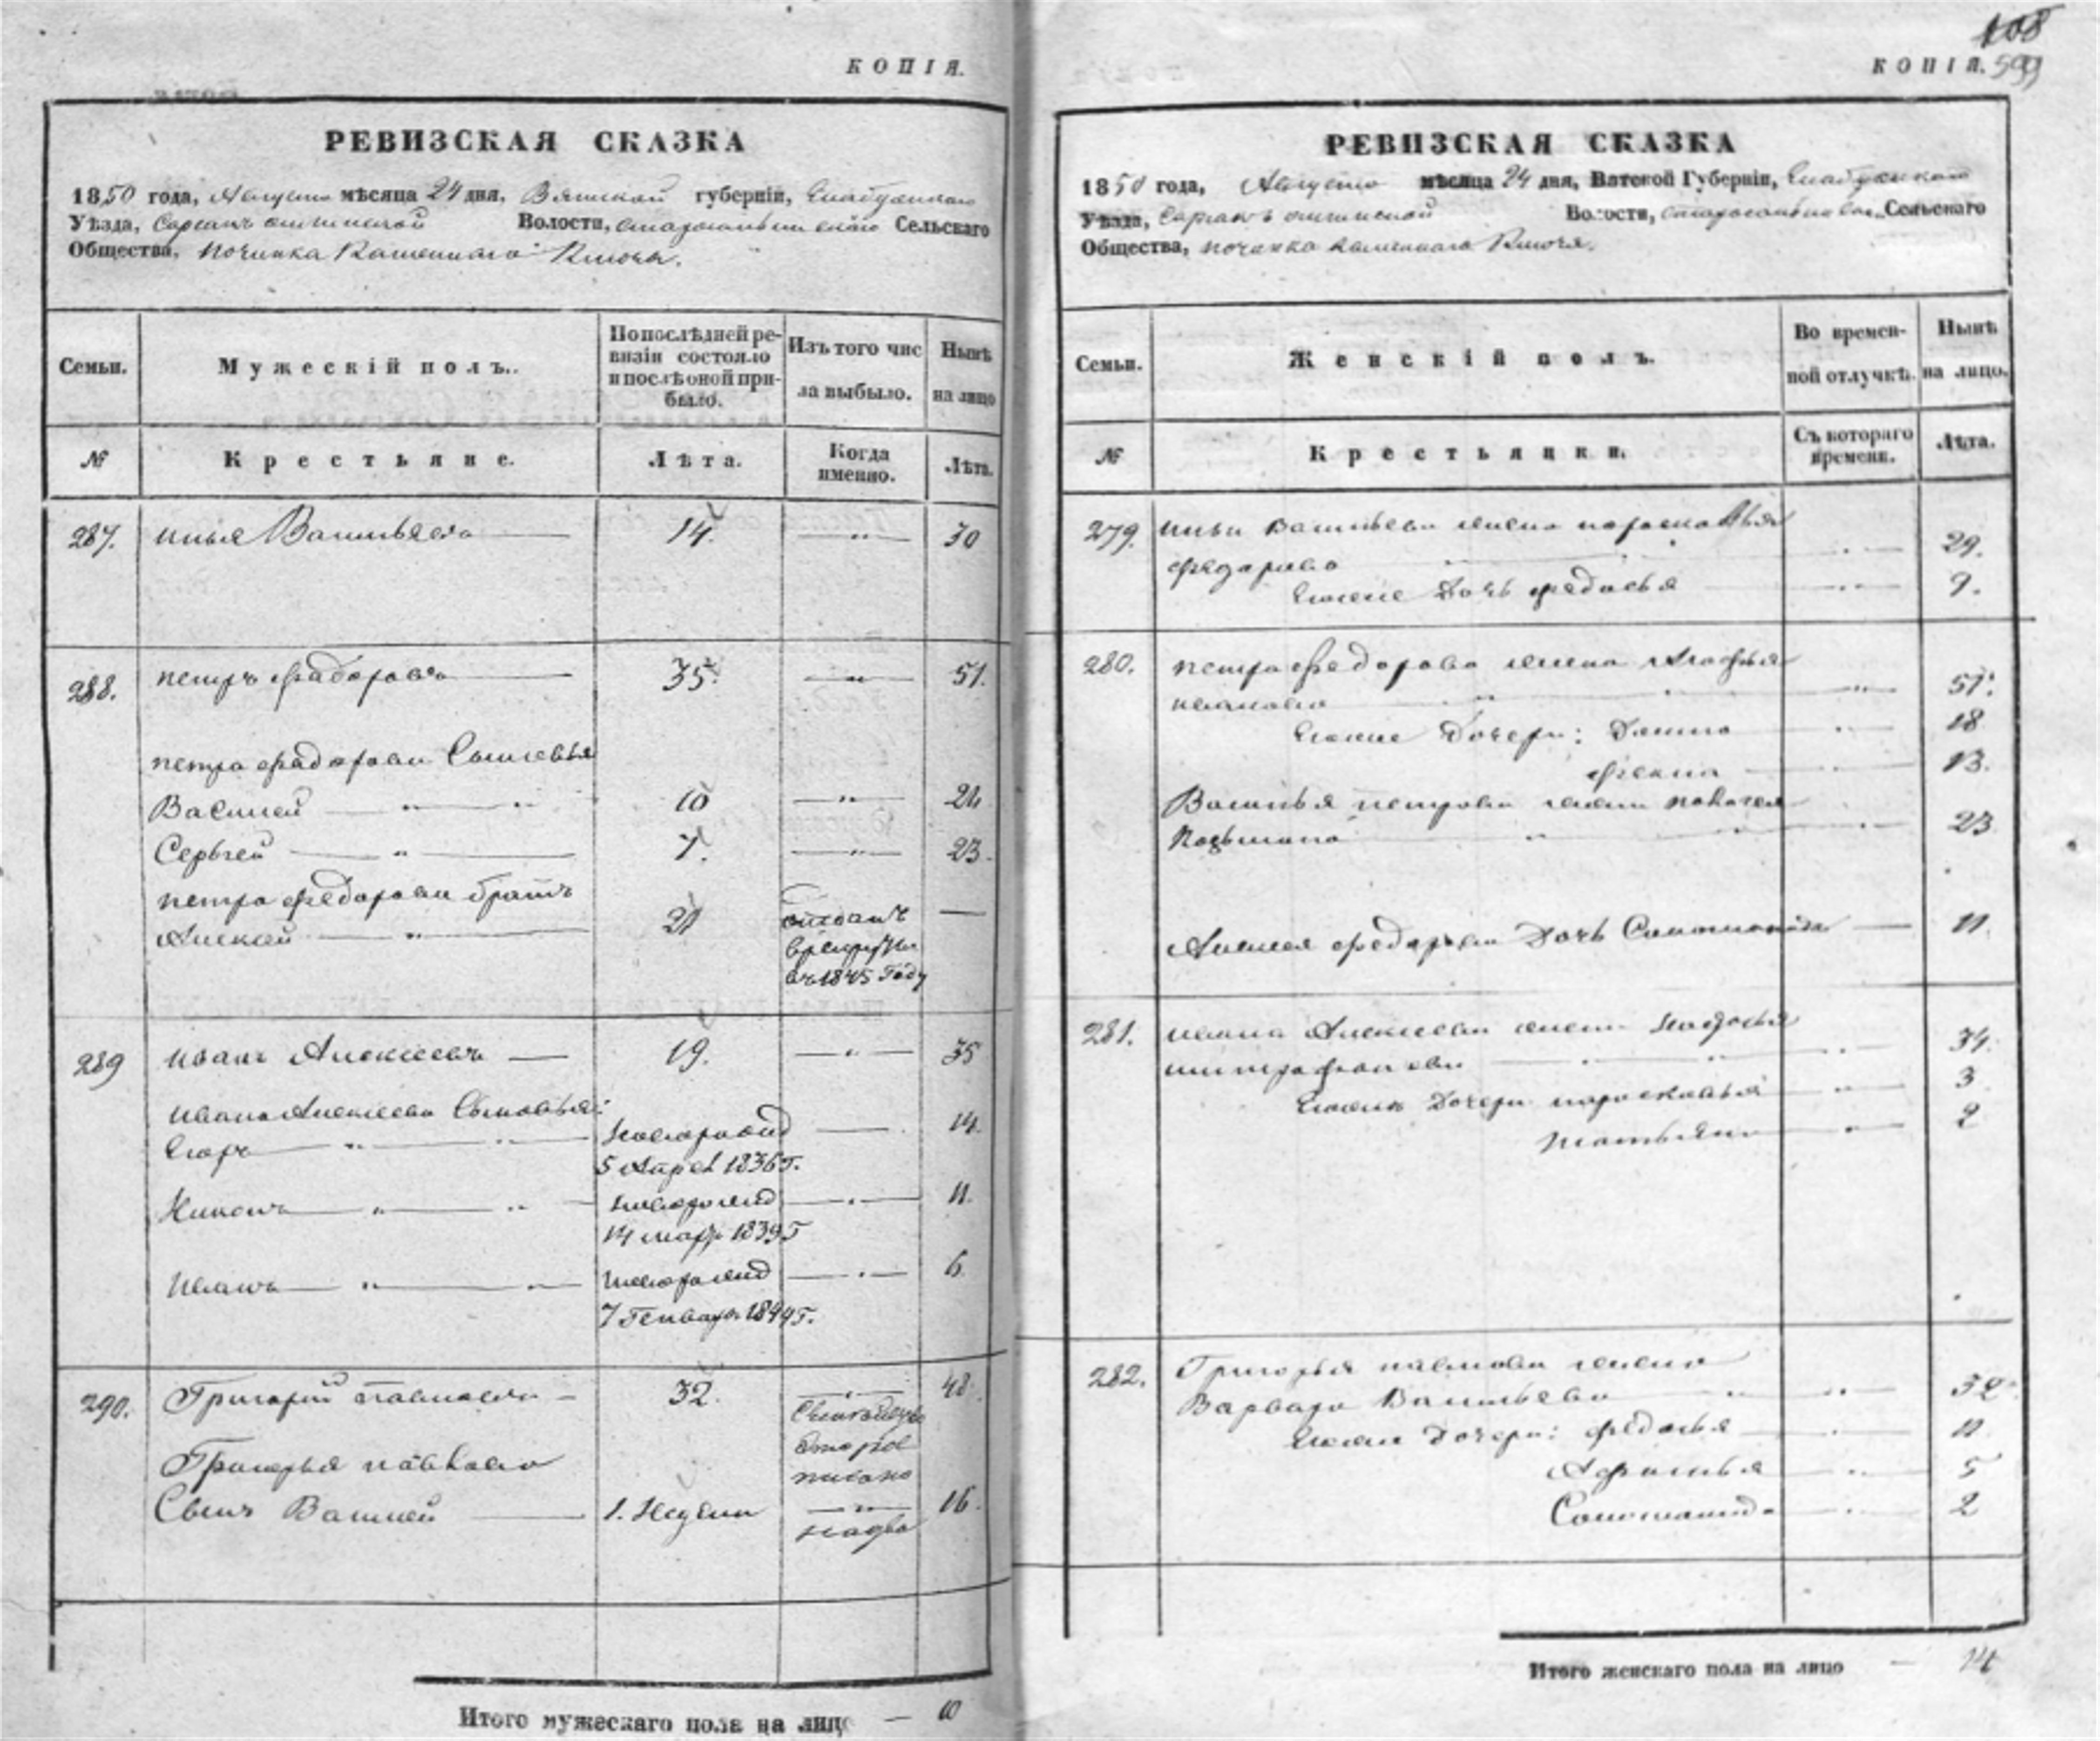 КОПІЯ.
РЕВИЗСКАЯ СКАЗКА
1850 года, Августа мѣсяца 24 дня, Вятской губерніи, Елабужскаго
Уѣзда, Волости, Сельскаго
Общества, починка Каменнаго Ключа.
Семьи.
Мужескій полъ.
По послѣдней ре-
визіи состояло
и послѣ оной при-
было.
Изъ того чис
ла выбыло.
Нынѣ
на лицо
№
Крестьяне.
Лѣта.
Когда
именно.
Лѣта.
287. Илья Васильевъ 14. 30
288. петръ федоровъ 35. 51.
петра федорова Сыновья
Василей 10 26
Сергей 7. 23.
петра федорова братъ
Алексей 21 отданъ
в рекруты
въ 1845 Году
289 Иванъ Алексеевъ 19. 35
Ивана Алексеева Сыновья:
Егоръ новорожд 14.
5 Апрел 1836 г.
Никонъ новорожд 11.
14 мар 1839 г
Иванъ новорожд 6.
7 Генваря 1844 г.
290. Григорий павловъ 32. 48.
Григорья павлова
Сынъ Василей 1. Недели 16.
Итого мужескаго пола на лицо — 10
108
КОПІЯ. 599
РЕВИЗСКАЯ СКАЗКА
1850 года, Августа мѣсяца 24 дня, Вятской Губерніи, Елабужскаго
Уѣзда, Волости, Сельскаго
Общества, починка каменнаго Ключа.
Семьи.
Женскій полъ.
Во времен-
ной отлучкѣ.
Нынѣ
на лицо.
№
Крестьянки.
Съ котораго
времени.
Лѣта.
279. Ильи Васильева жена парасковья
федорова 29.
Ево дочь федосья 9.
280. петра федорова жена Агафья
иванова 51.
дочери: Домна 18
фекла 13.
Василья петрова жена пелагея
Козьмина 23
Алексея федорова дочь Соломонида 11.
281. ивана Алексеева жена
митрофанова 34.
дочери парасковья 3
татьяна 2
282. Григорья павлова жена
Варвара Васильева 32
дочери: федосья 11
Афимья 5
Соломонида 2
Итого женскаго пола на лицо — 14